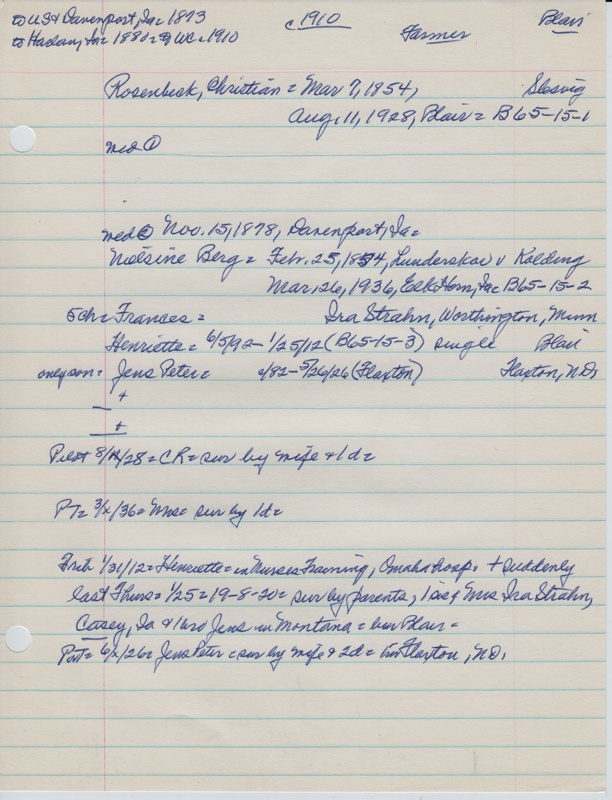 to USA Davenport, Ia = 1873
c 1910
Blair
to Harlan, Ia = 188 = WC = 1910
Farmer
Rosenbeck, Christian = Mar 7, 1854, Slesvig
Aug, 11, 1928, Blair = B65-15-1
med ①
med ② Nov. 15, 1878, Davenport, Ia =
Nielsine Berg = Febr. 25, 1854, Lunderskov v Kolding
Mar. 26, 1936, Elk Horn, Ia B65-15-2
5 ch = Frances = Ira Strahn, Worthington, Minn
Henriette = 6/5/92 - 1/25/12 (B65-15-3) single Blair
only son = Jens Peter = c/82 - 5/26/26 (Flaxton) Flaxton, N.D.
+
+
Pilot 8/ /28 = CR = sur by wife & 1d =
PT = 3/x/36 = Mrs = sur by 1d =
1/31/12 = Henriette = in Nurses Training, Omaha hosp. + suddenly
last Thurs = 1/25 = 19-8-20 = sur by parents, 1 sis Mrs Ira Strahn,
Casey, Ia & 1 bro Jens in Montana = bur Blair =
6/x/26 = Jens Peter = sur by wife & 2d = bur Flaxton, N.D.